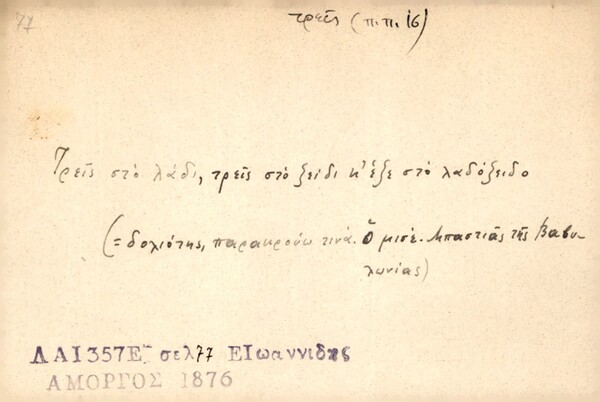 77
τρεῖς (π.π. 16)
Τρεῖς στὸ λάδι, τρεῖς στὸ ξείδι κ' ἕξε στὸ λαδόξειδο
(= δολιότης, παρακρούω τινά. Ὁ μισέ-Μπαστιᾶς τῆς Βαβυ-
λωνίας)
ΛΑΙ357Ε σελ77 ΕΙωαννιδης
ΑΜΟΡΓΟΣ 1876